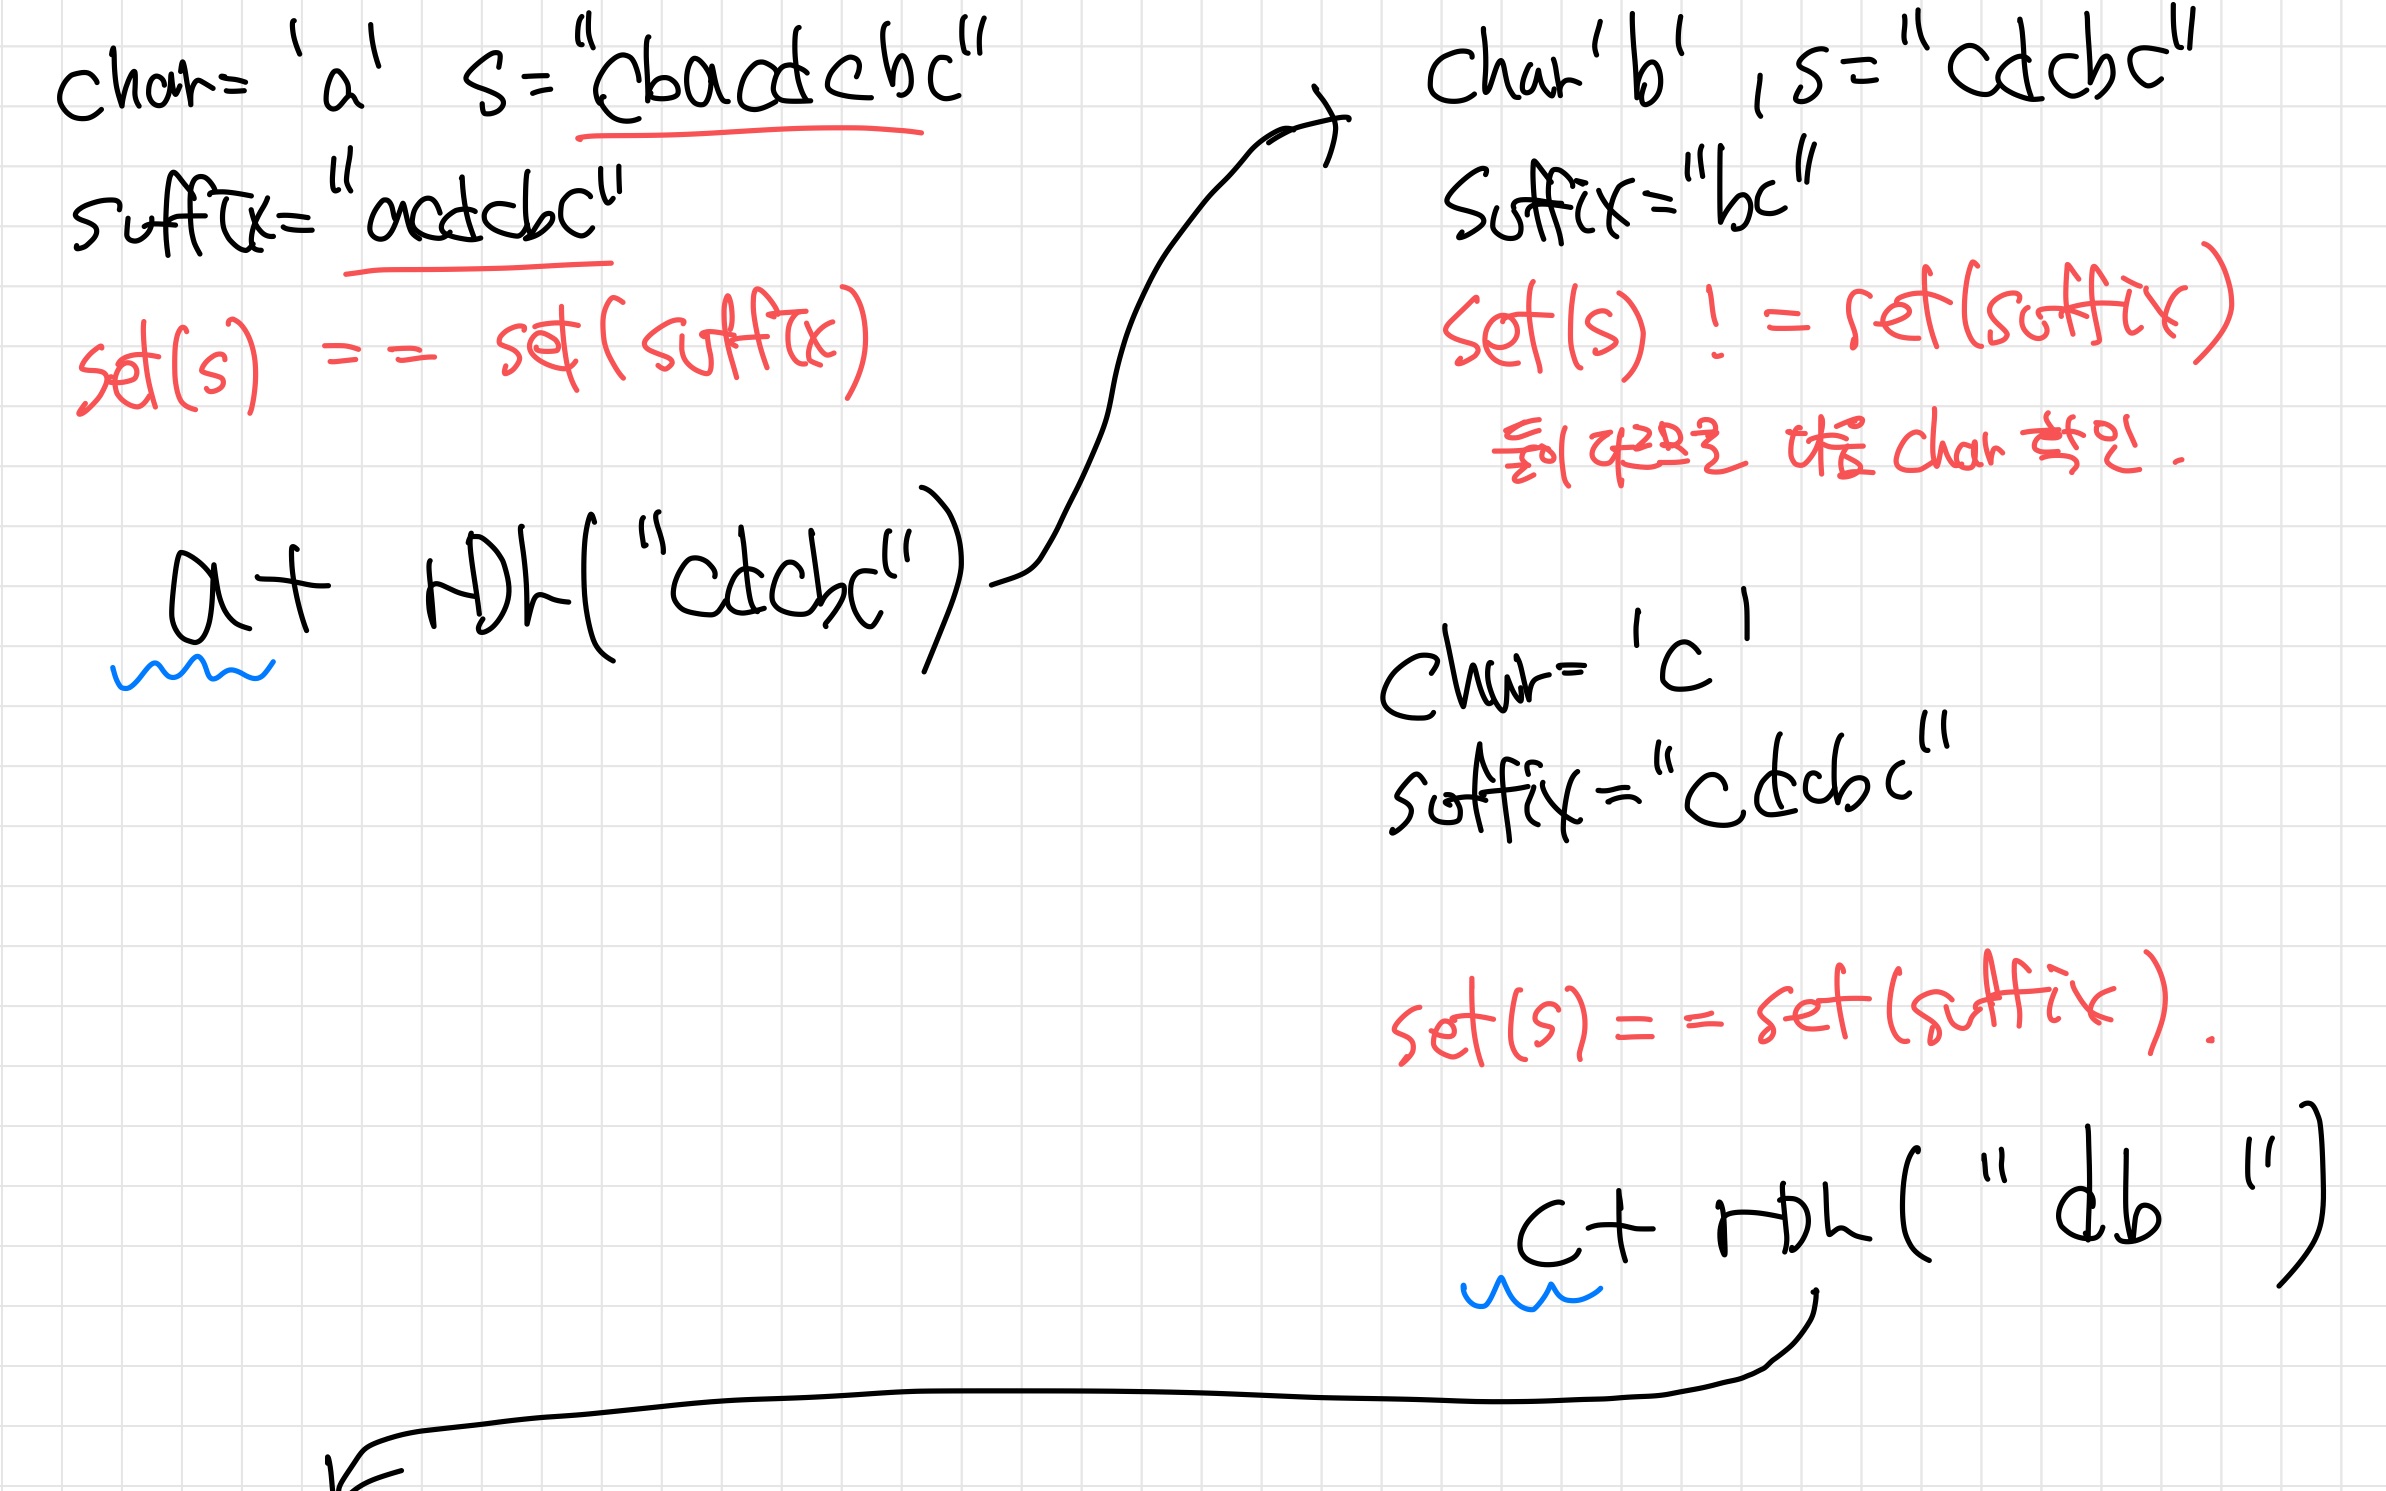 char= 'a' s="cbacdcbc"
suffix= "acdcbc"
set(s) == set(suffix)
a+ rDL("cdcbc")
char 'b', s="cdcbc"
suffix="bc"
set(s) != set(suffix)
char
char= 'c'
suffix="cdcbc"
set(s) == set(suffix).
c+ rDL("db")